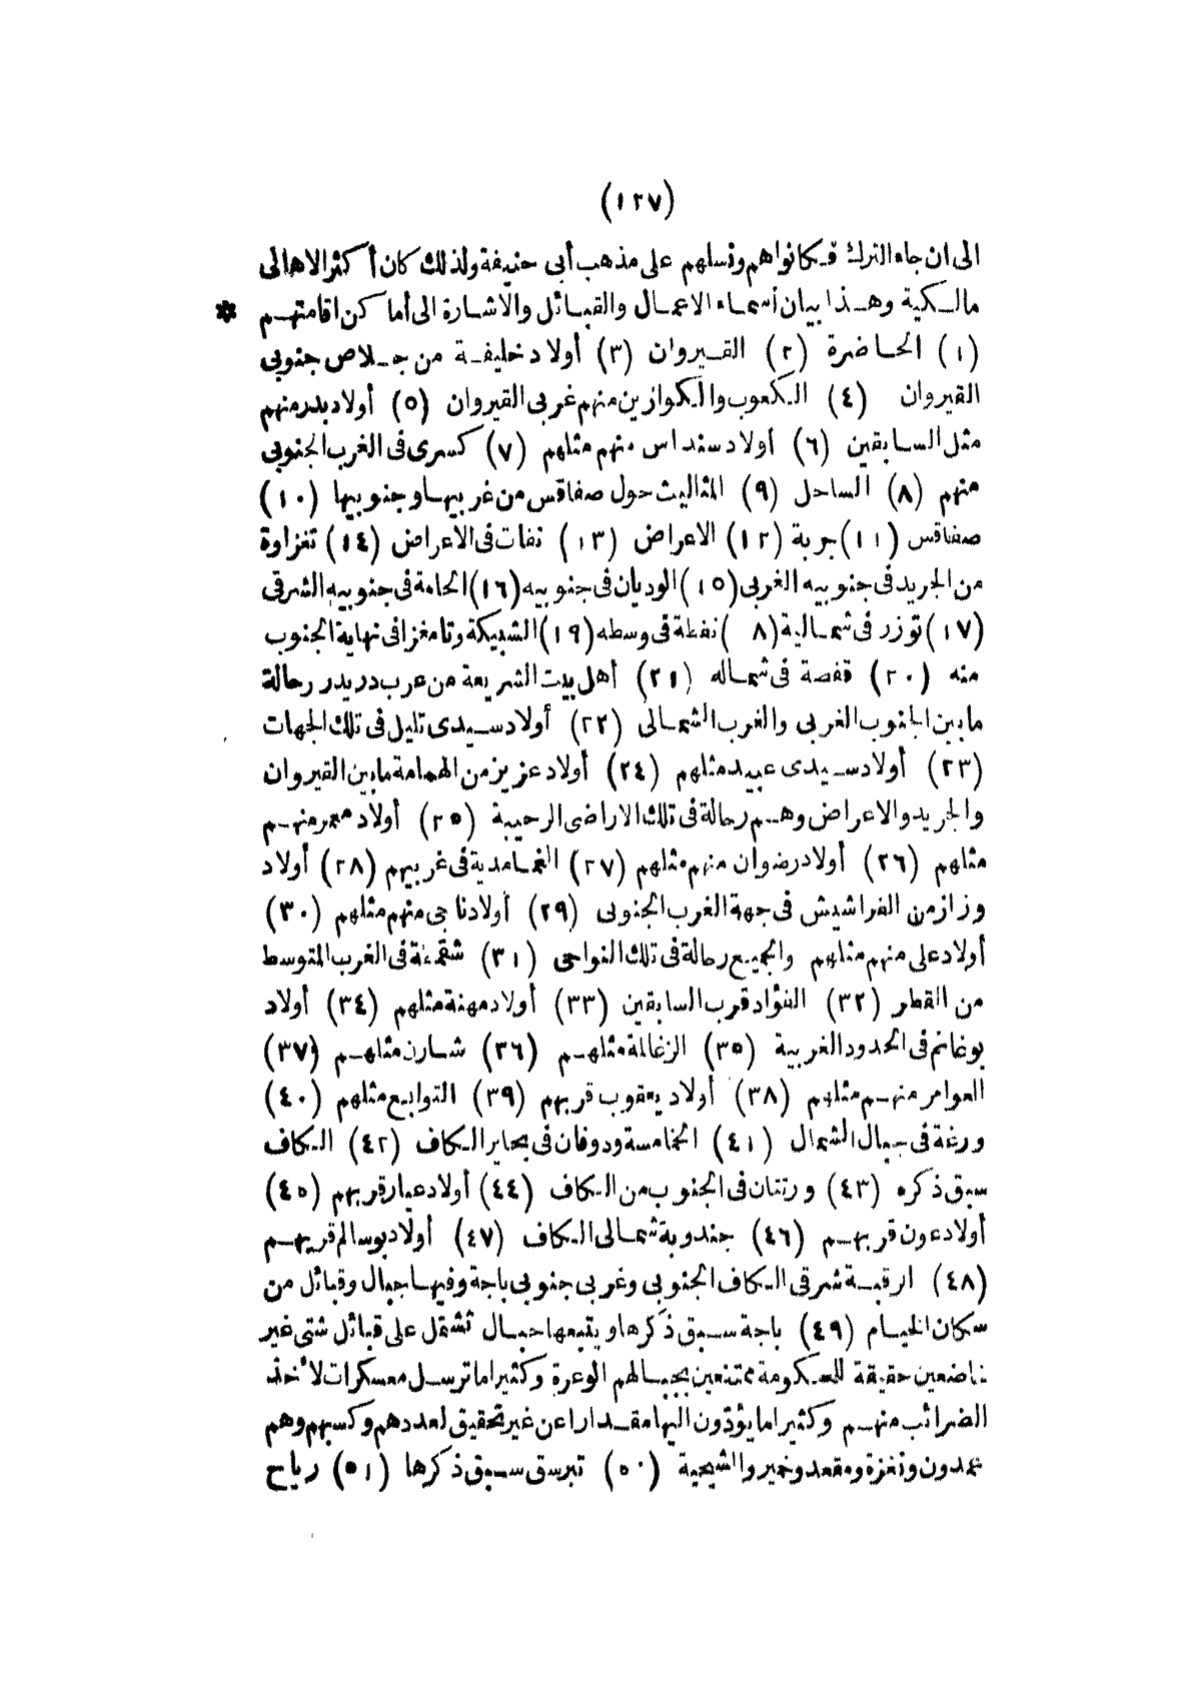 (١٢٧)
الى ان جاء الترك فكانوا هم ونسلهم على مذهب أبى حنيفة ولذلك كان أكثر الاهالى
مالكية وهذا بيان أسماء الاعمال والقبائل والاشارة الى أماكن اقامتهم *
(١) الحاضرة (٢) القيروان (٣) أولاد خليفة من جلاص جنوبى
القيروان (٤) الكعوب والكوازين منهم غربى القيروان (٥) أولاد يدير منهم
مثل السابقين (٦) أولاد سنداس منهم مثلهم (٧) كسرى فى الغرب الجنوبى
منهم (٨) الساحل (٩) المثاليث حول صفاقس من غربيها وجنوبيها (١٠)
صفاقس (١١) جربة (١٢) الاعراض (١٣) نفات فى الاعراض (١٤) نفزاوة
من الجريد فى جنوبيه الغربى (١٥) الوديان فى جنوبيه (١٦) الحامة فى جنوبيه الشرقى
(١٧) توزر فى شمالية (٨ ) نفطة فى وسطه (١٩) الشبيكة وتامغزا فى نهاية الجنوب
منه (٢٠) قفصة فى شماله (٢١) أهل بيت الشريعة من عرب دريد رحالة
ما بين الجنوب الغربى والغرب الشمالى (٢٢) أولاد سيدى تليل فى تلك الجهات
(٢٣) أولاد سيدى عبيد مثلهم (٢٤) أولاد عزيز من الهمامة ما بين القيروان
والجريد والاعراض وهم رحالة فى تلك الاراضى الرحيبة (٢٥) أولاد معمر منهم
مثلهم (٢٦) أولاد رضوان منهم مثلهم (٢٧) الغمامدية فى غربيهم (٢٨) أولاد
وزاز من الفراشيش فى جهة الغرب الجنوبى (٢٩) أولاد ناجى منهم مثلهم (٣٠)
أولاد على منهم مثلهم والجميع رحالة فى تلك النواحى (٣١) شقمة فى الغرب المتوسط
من القطر (٣٢) الفؤاد قرب السابقين (٣٣) أولاد مهنة مثلهم (٣٤) أولاد
بوغانم فى الحدود الغربية (٣٥) الزغالمة مثلهم (٣٦) شارن مثلهم (٣٧)
العوامر منهم مثلهم (٣٨) أولاد يعقوب قربهم (٣٩) التوابع مثلهم (٤٠)
ورغة فى جبال الشمال (٤١) الخمامسة ودوفان فى بحاير الكاف (٤٢) الكاف
سبق ذكره (٤٣) ورتتان فى الجنوب من الكاف (٤٤) أولاد عيار قربهم (٤٥)
أولاد عون قربهم (٤٦) جندوبة شمالى الكاف (٤٧) أولاد بوسالم قربهم
(٤٨) ارقبة شرقى الكاف الجنوبى وغربى جنوبى باجة وفيها جبال وقبائل من
سكان الخيام (٤٩) باجة سبق ذكرها ويتبعها جبال تشتمل على قبائل شتى غير
خاضعين حقيقة للحكومة ممتنعين بجبالهم الوعرة وكثيرا ما ترسل معسكرات لأخذ
الضرائب منهم وكثيرا ما يؤدّون اليها مقدارا عن غير تحقيق لعددهم وكسبهم وهم
عمدون ونفزة ومقعد وخمير والشيحية (٥٠) تبرسق سبق ذكرها (٥١) رياح